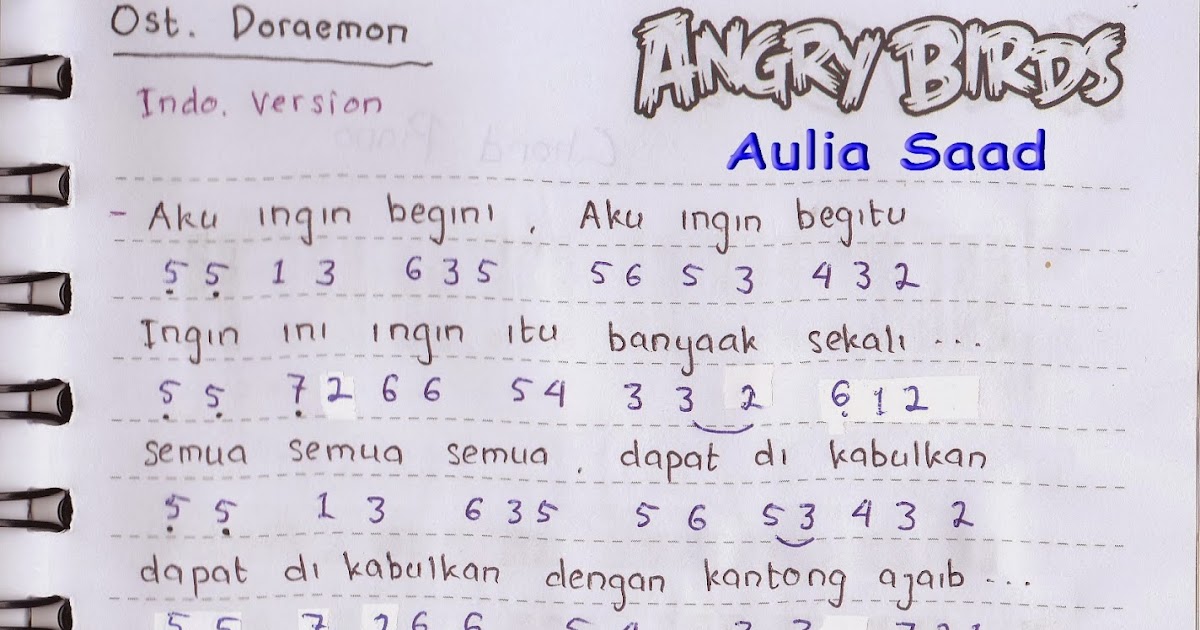 Ost. Doraemon
ANGRY BIRDS
Indo. version
Aulia Saad
- Aku ingin begini , Aku ingin begitu
5̣ 5̣ 1 3 6 3 5 5 6 5 3 4 3 2
Ingin ini ingin itu banyaak sekali ...
5̣ 5̣ 7̣ 2 6 6 5 4 3 3 2 6̣ 1 2
semua semua semua , dapat di kabulkan
5̣ 5̣ 1 3 6 3 5 5 6 5 3 4 3 2
dapat di kabulkan dengan kantong ajaib ...